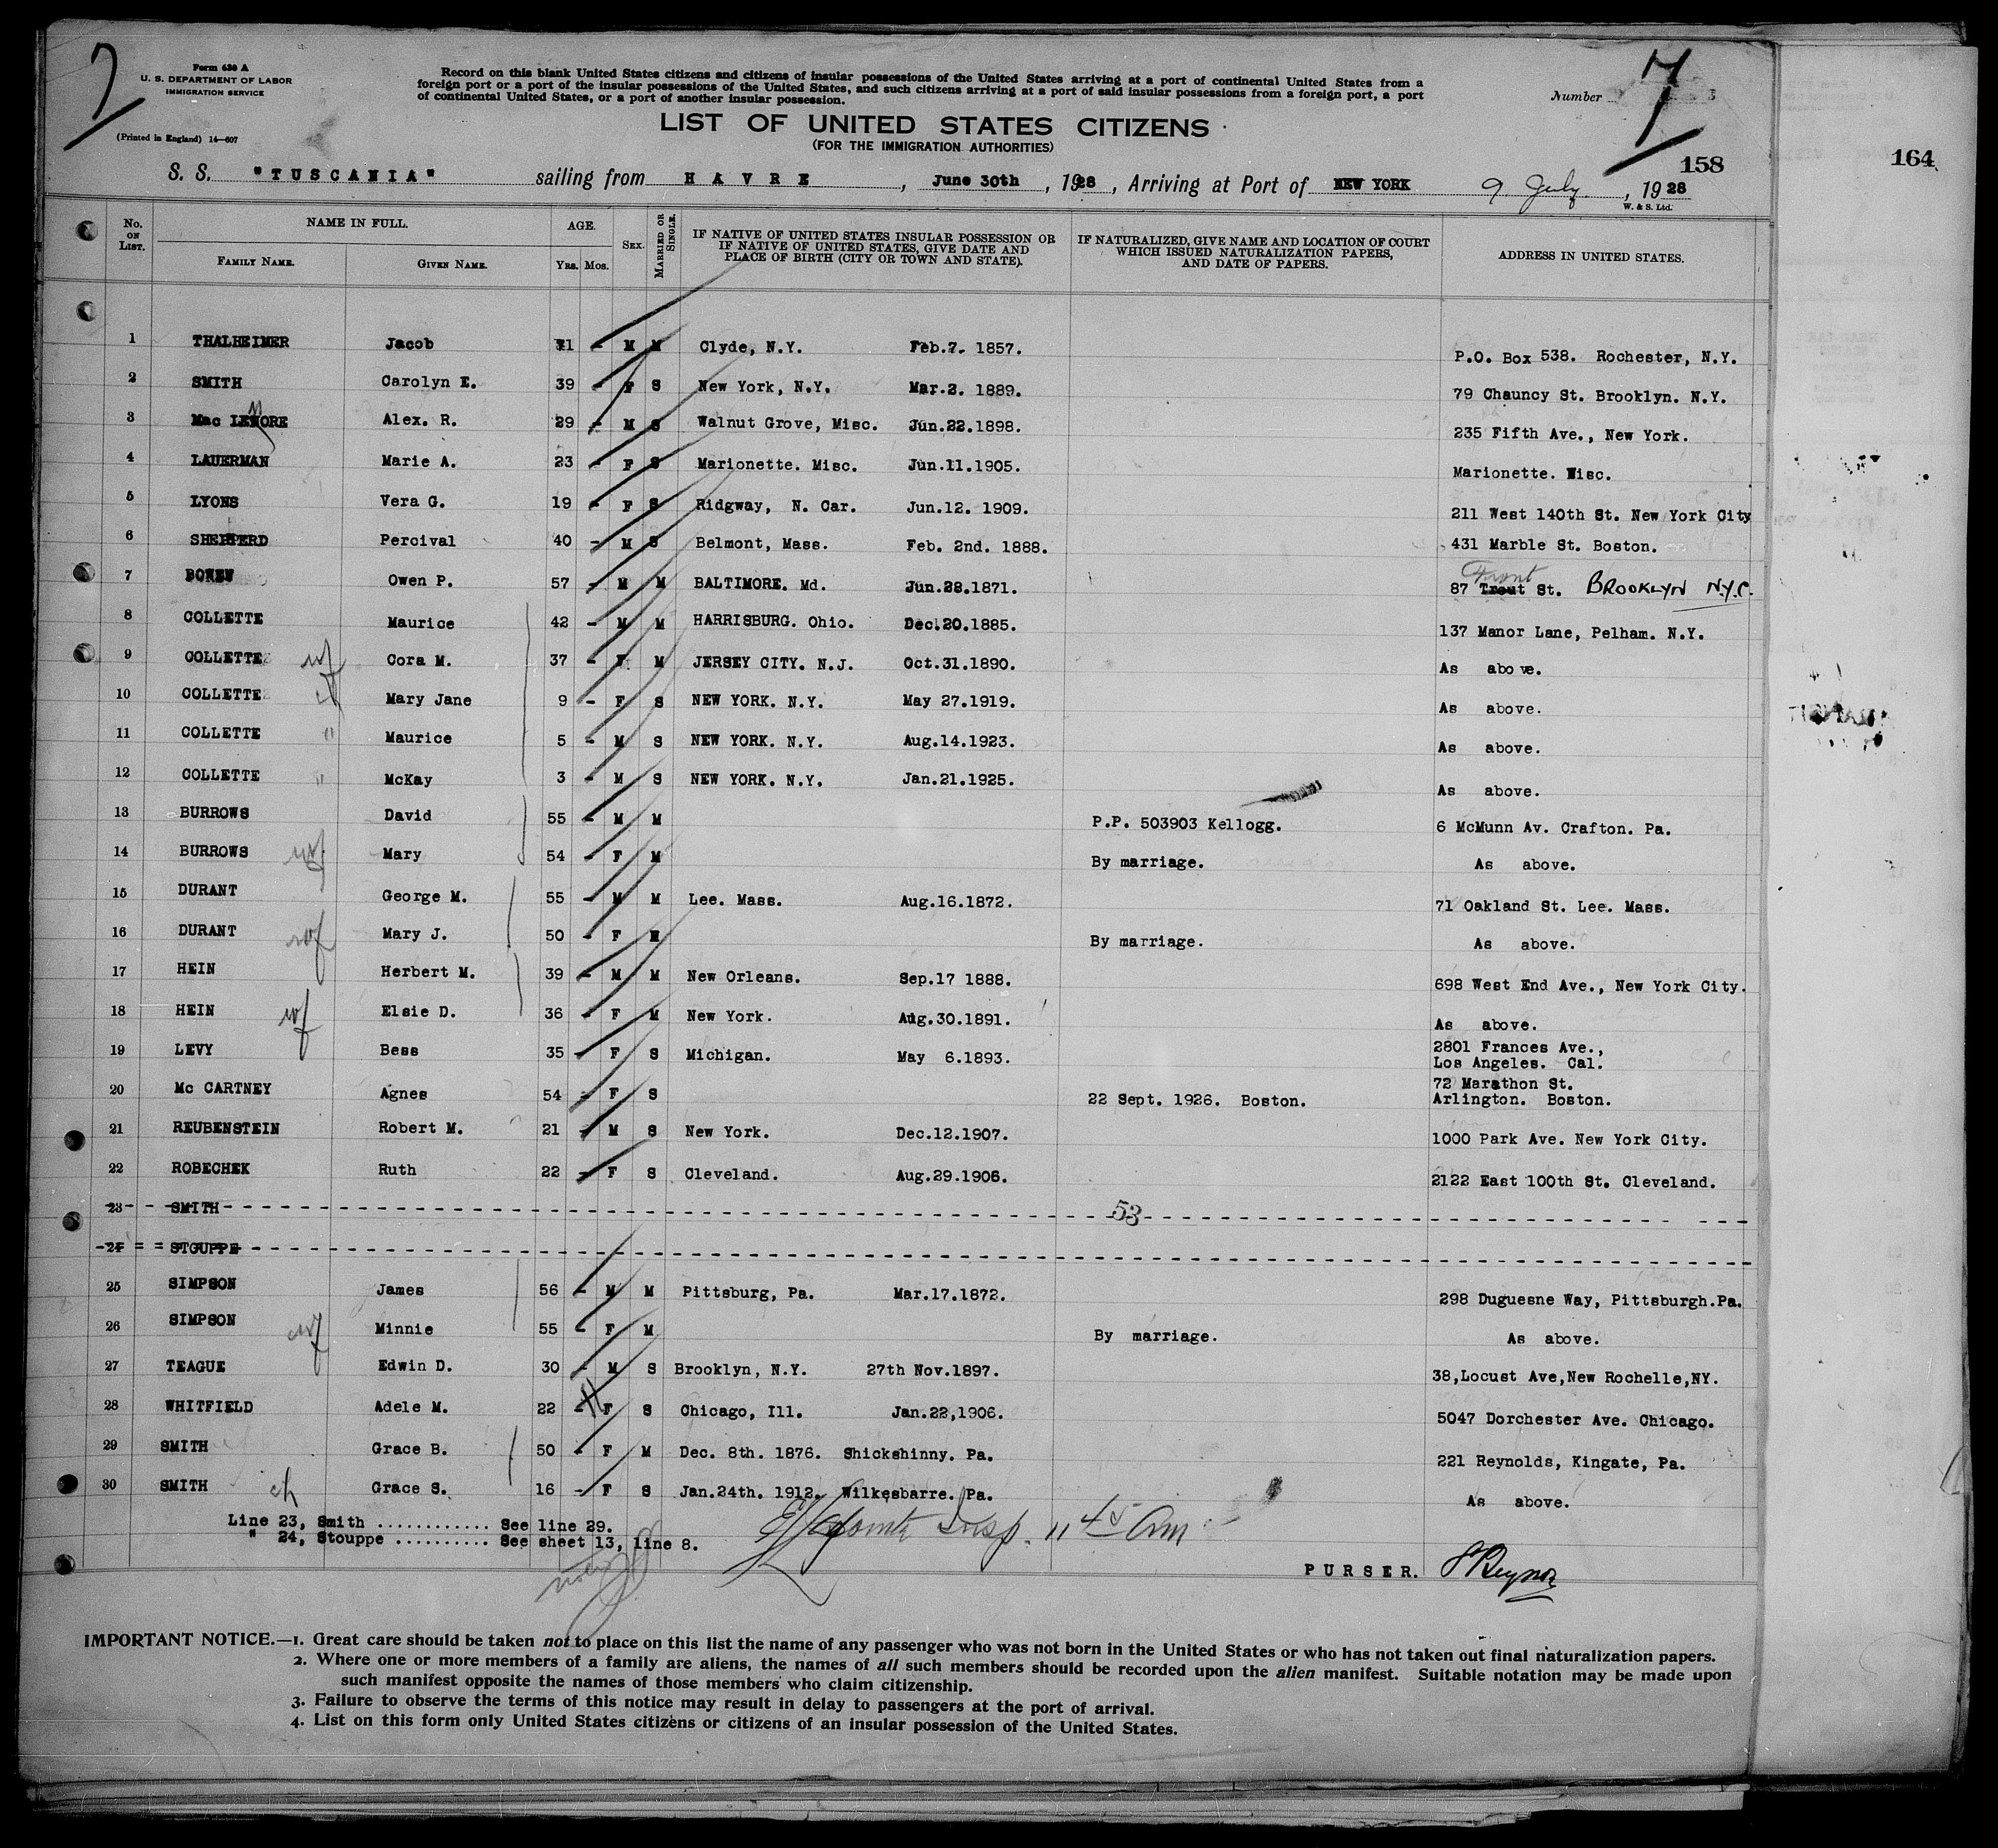 2
7
Form 630 A
U. S. DEPARTMENT OF LABOR
IMMIGRATION SERVICE
(Printed in England) 14—607
Record on this blank United States citizens and citizens of insular possessions of the United States arriving at a port of continental United States from a
foreign port or a port of the insular possessions of the United States, and such citizens arriving at a port of said insular possessions from a foreign port, a port
of continental United States, or a port of another insular possession.
Number
LIST OF UNITED STATES CITIZENS
(FOR THE IMMIGRATION AUTHORITIES)
158
164
S. S. "TUSCANIA" sailing from HAVRE, June 30th, 1928, Arriving at Port of NEW YORK 9 July, 1928
W. & S. Ltd.
No. ON LIST. NAME IN FULL. AGE. SEX. MARRIED OR SINGLE. IF NATIVE OF UNITED STATES INSULAR POSSESSION OR IF NATIVE OF UNITED STATES, GIVE DATE AND PLACE OF BIRTH (CITY OR TOWN AND STATE). IF NATURALIZED, GIVE NAME AND LOCATION OF COURT WHICH ISSUED NATURALIZATION PAPERS, AND DATE OF PAPERS. ADDRESS IN UNITED STATES.
FAMILY NAME. GIVEN NAME. YRS. MOS.
1 THALHEIMER Jacob 71 - M M Clyde, N.Y. Feb.7. 1857. P.O. Box 538. Rochester, N.Y.
2 SMITH Carolyn E. 39 - F S New York, N.Y. Mar.2. 1889. 79 Chauncy St. Brooklyn. N.Y.
3 Mac LEMORE Alex. R. 29 - M S Walnut Grove, Misc. Jun.22.1898. 235 Fifth Ave., New York.
4 LAUERMAN Marie A. 23 - F S Marionette. Misc. Jun.11.1905. Marionette. Wisc.
5 LYONS Vera G. 19 - F S Ridgway, N. Car. Jun.12. 1909. 211 West 140th St. New York City
6 SHEPPERD Percival 40 - M S Belmont, Mass. Feb. 2nd. 1888. 431 Marble St. Boston.
7 BOWEN Owen P. 57 - M M BALTIMORE. Md. Jun.28.1871. 87 Trout Front St. BROOKLYN N.Y.C.
8 COLLETTE Maurice 42 - M M HARRISBURG. Ohio. Dec.20.1885. 137 Manor Lane, Pelham. N.Y.
9 COLLETTE wf Cora M. 37 - F M JERSEY CITY. N.J. Oct.31.1890. As above.
10 COLLETTE ch Mary Jane 9 - F S NEW YORK. N.Y. May 27.1919. As above.
11 COLLETTE " Maurice 5 - M S NEW YORK. N.Y. Aug.14.1923. As above.
12 COLLETTE " McKay 3 - M S NEW YORK. N.Y. Jan.21.1925. As above.
13 BURROWS David 55 - M M P.P. 503903 Kellogg. 6 McMunn Av. Crafton. Pa.
14 BURROWS wf Mary 54 - F M By marriage. As above.
15 DURANT George M. 55 - M M Lee. Mass. Aug.16.1872. 71 Oakland St. Lee. Mass.
16 DURANT wf Mary J. 50 - F M By marriage. As above.
17 HEIN Herbert M. 39 - M M New Orleans. Sep.17 1888. 698 West End Ave., New York City.
18 HEIN wf Elsie D. 36 - F M New York. Aug.30.1891. As above.
19 LEVY Bess 35 - F S Michigan. May 6.1893. 2801 Frances Ave., Los Angeles. Cal.
20 Mc CARTNEY Agnes 54 - F S 22 Sept. 1926. Boston. 72 Marathon St. Arlington. Boston.
21 REUBENSTEIN Robert M. 21 - M S New York. Dec.12.1907. 1000 Park Ave. New York City.
22 ROBECHEK Ruth 22 - F S Cleveland. Aug.29.1906. 2122 East 100th St. Cleveland.
23 SMITH 53
24 STOUPPE
25 SIMPSON James 56 - M M Pittsburg, Pa. Mar.17.1872. 298 Duguesne Way, Pittsburgh.Pa.
26 SIMPSON wf Minnie 55 - F M By marriage. As above.
27 TEAGUE Edwin D. 30 - M S Brooklyn, N.Y. 27th Nov.1897. 38,Locust Ave,New Rochelle,NY.
28 WHITFIELD Adele M. 22 - F S Chicago, Ill. Jan.22,1906. 5047 Dorchester Ave. Chicago.
29 SMITH Grace B. 50 - F M Dec. 8th. 1876. Shickshinny. Pa. 221 Reynolds, Kingate, Pa.
30 SMITH ch Grace S. 16 - F S Jan.24th. 1912. Wilkesbarre. Pa. As above.
Line 23, Smith ............ See line 29.
" 24, Stouppe .......... See sheet 13, line 8.
Insp. 11 45 Am
PURSER.
IMPORTANT NOTICE.—1. Great care should be taken not to place on this list the name of any passenger who was not born in the United States or who has not taken out final naturalization papers.
2. Where one or more members of a family are aliens, the names of all such members should be recorded upon the alien manifest. Suitable notation may be made upon
such manifest opposite the names of those members who claim citizenship.
3. Failure to observe the terms of this notice may result in delay to passengers at the port of arrival.
4. List on this form only United States citizens or citizens of an insular possession of the United States.